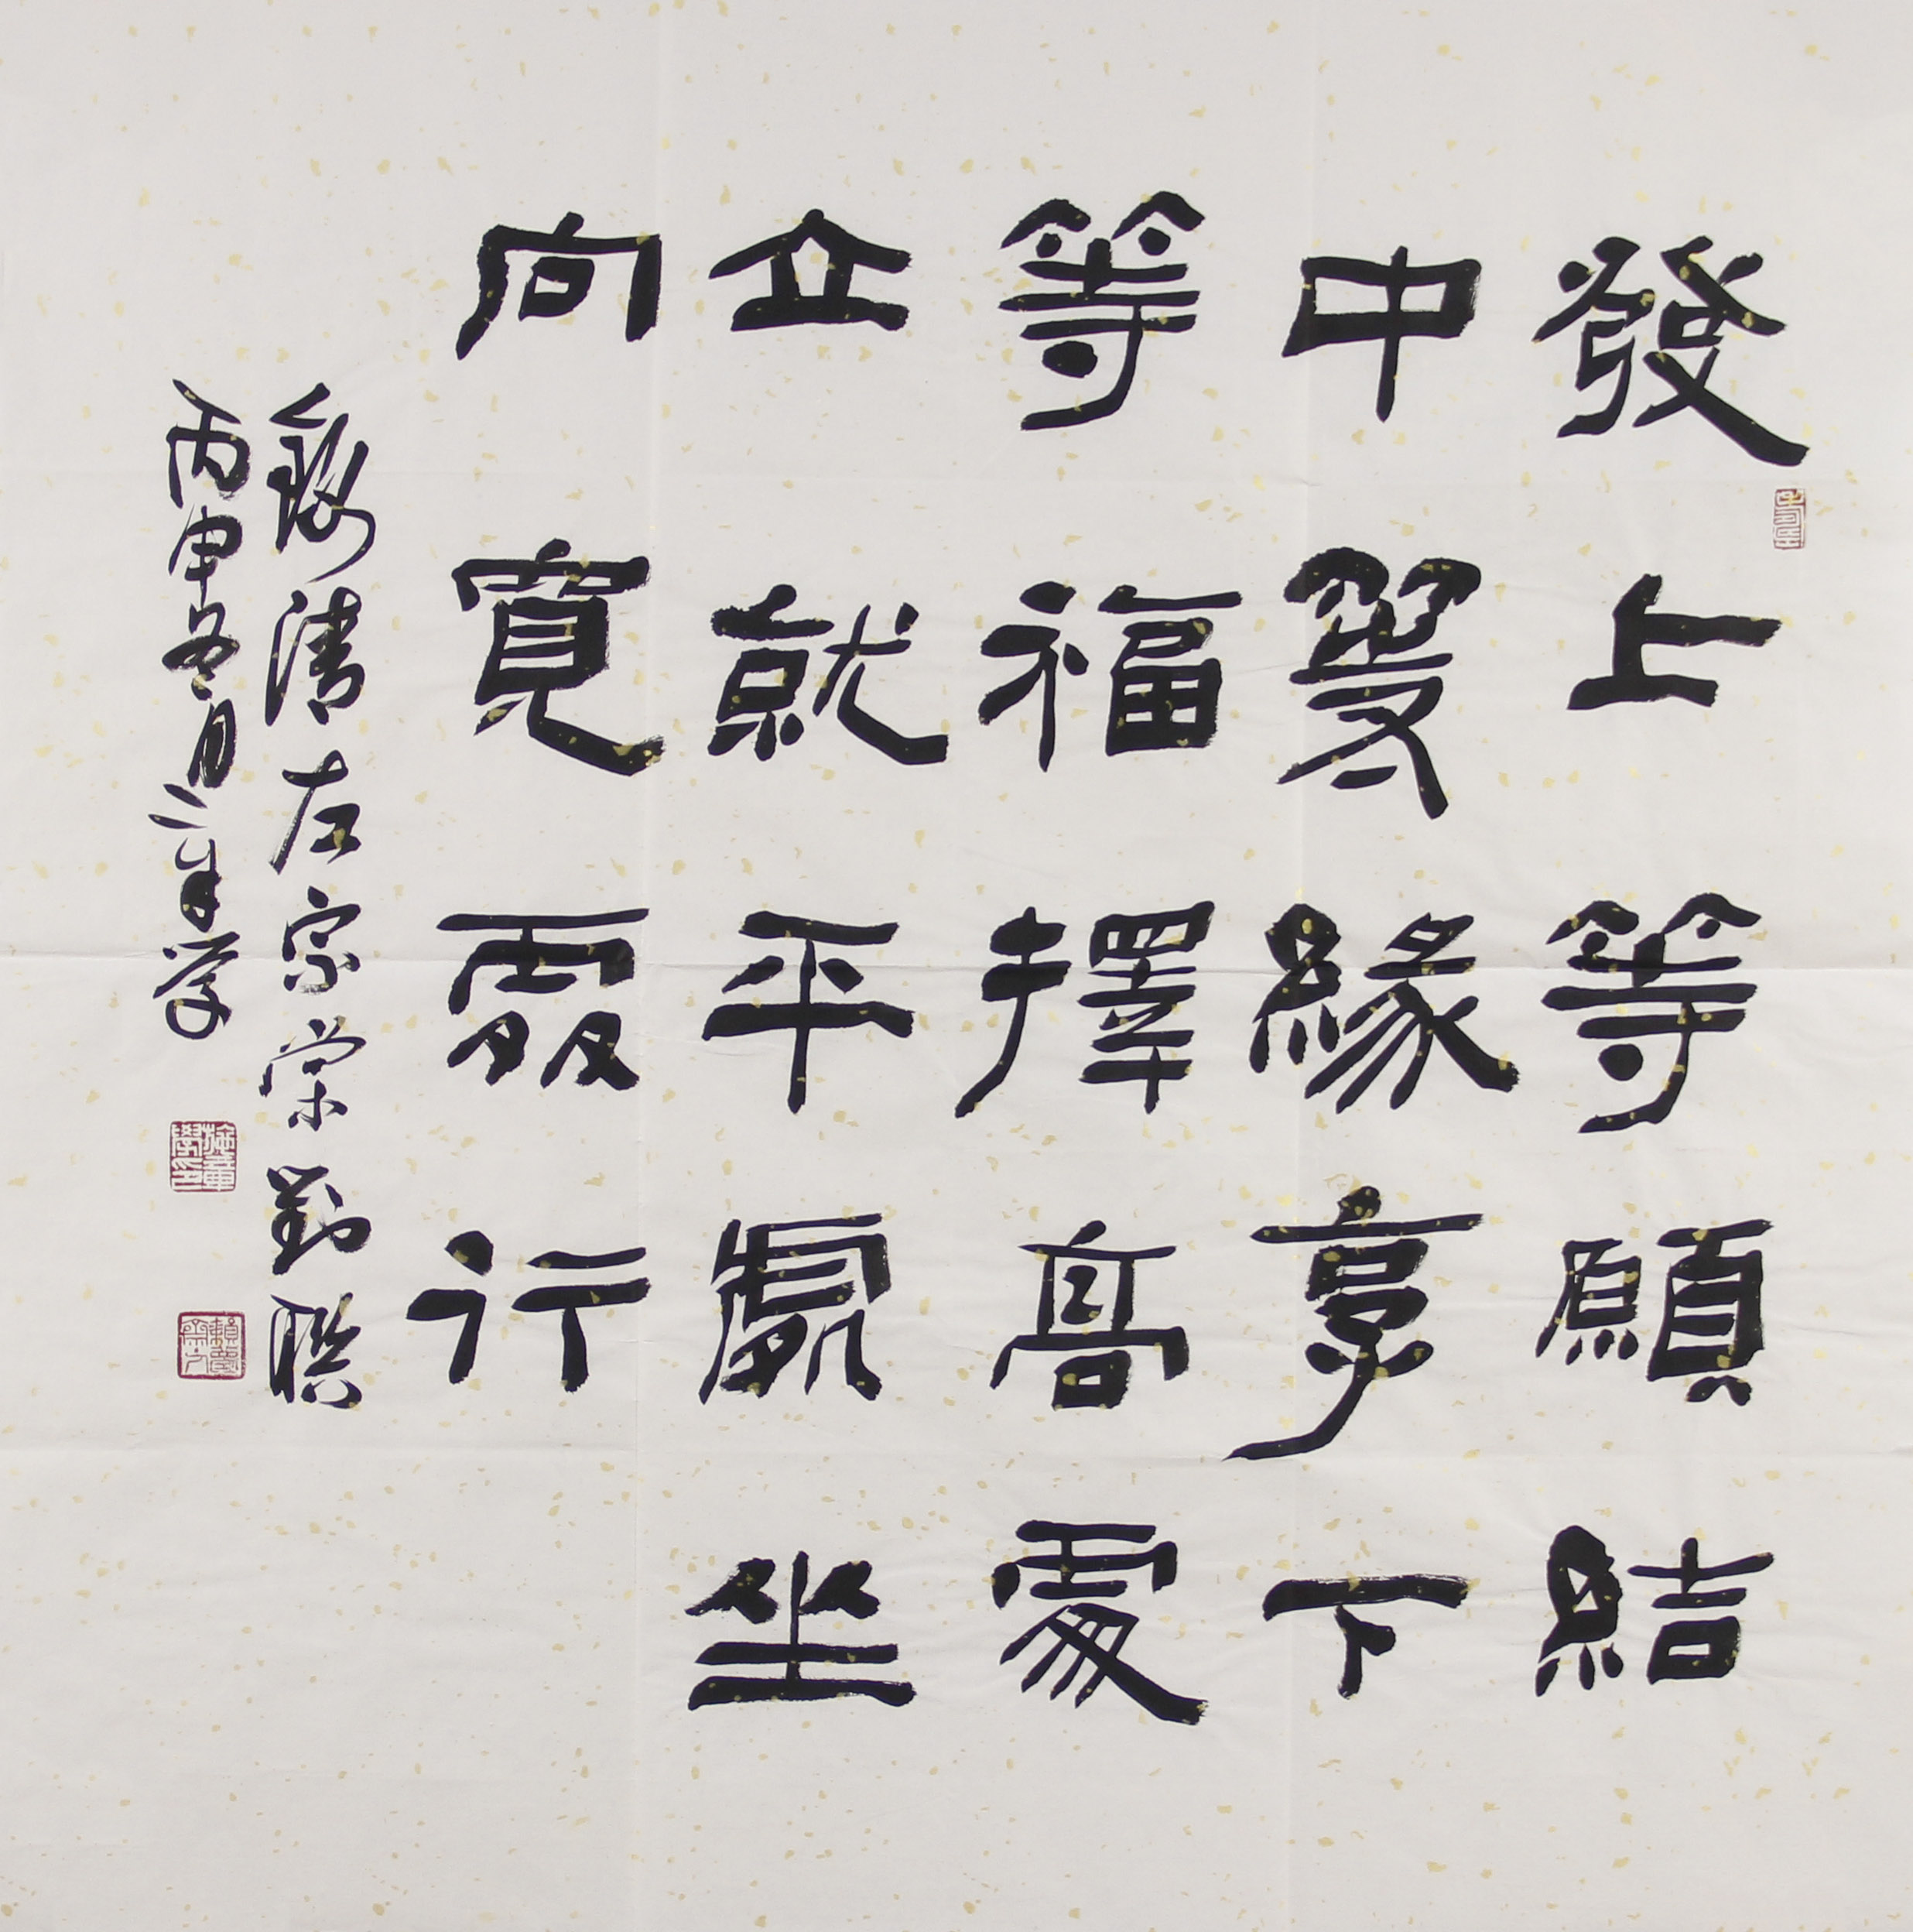 發上等願結
中等緣享下
等福擇高處
立就平處坐
向寬處行
錄清左宗棠對聯
丙申冬月章学
施章學印